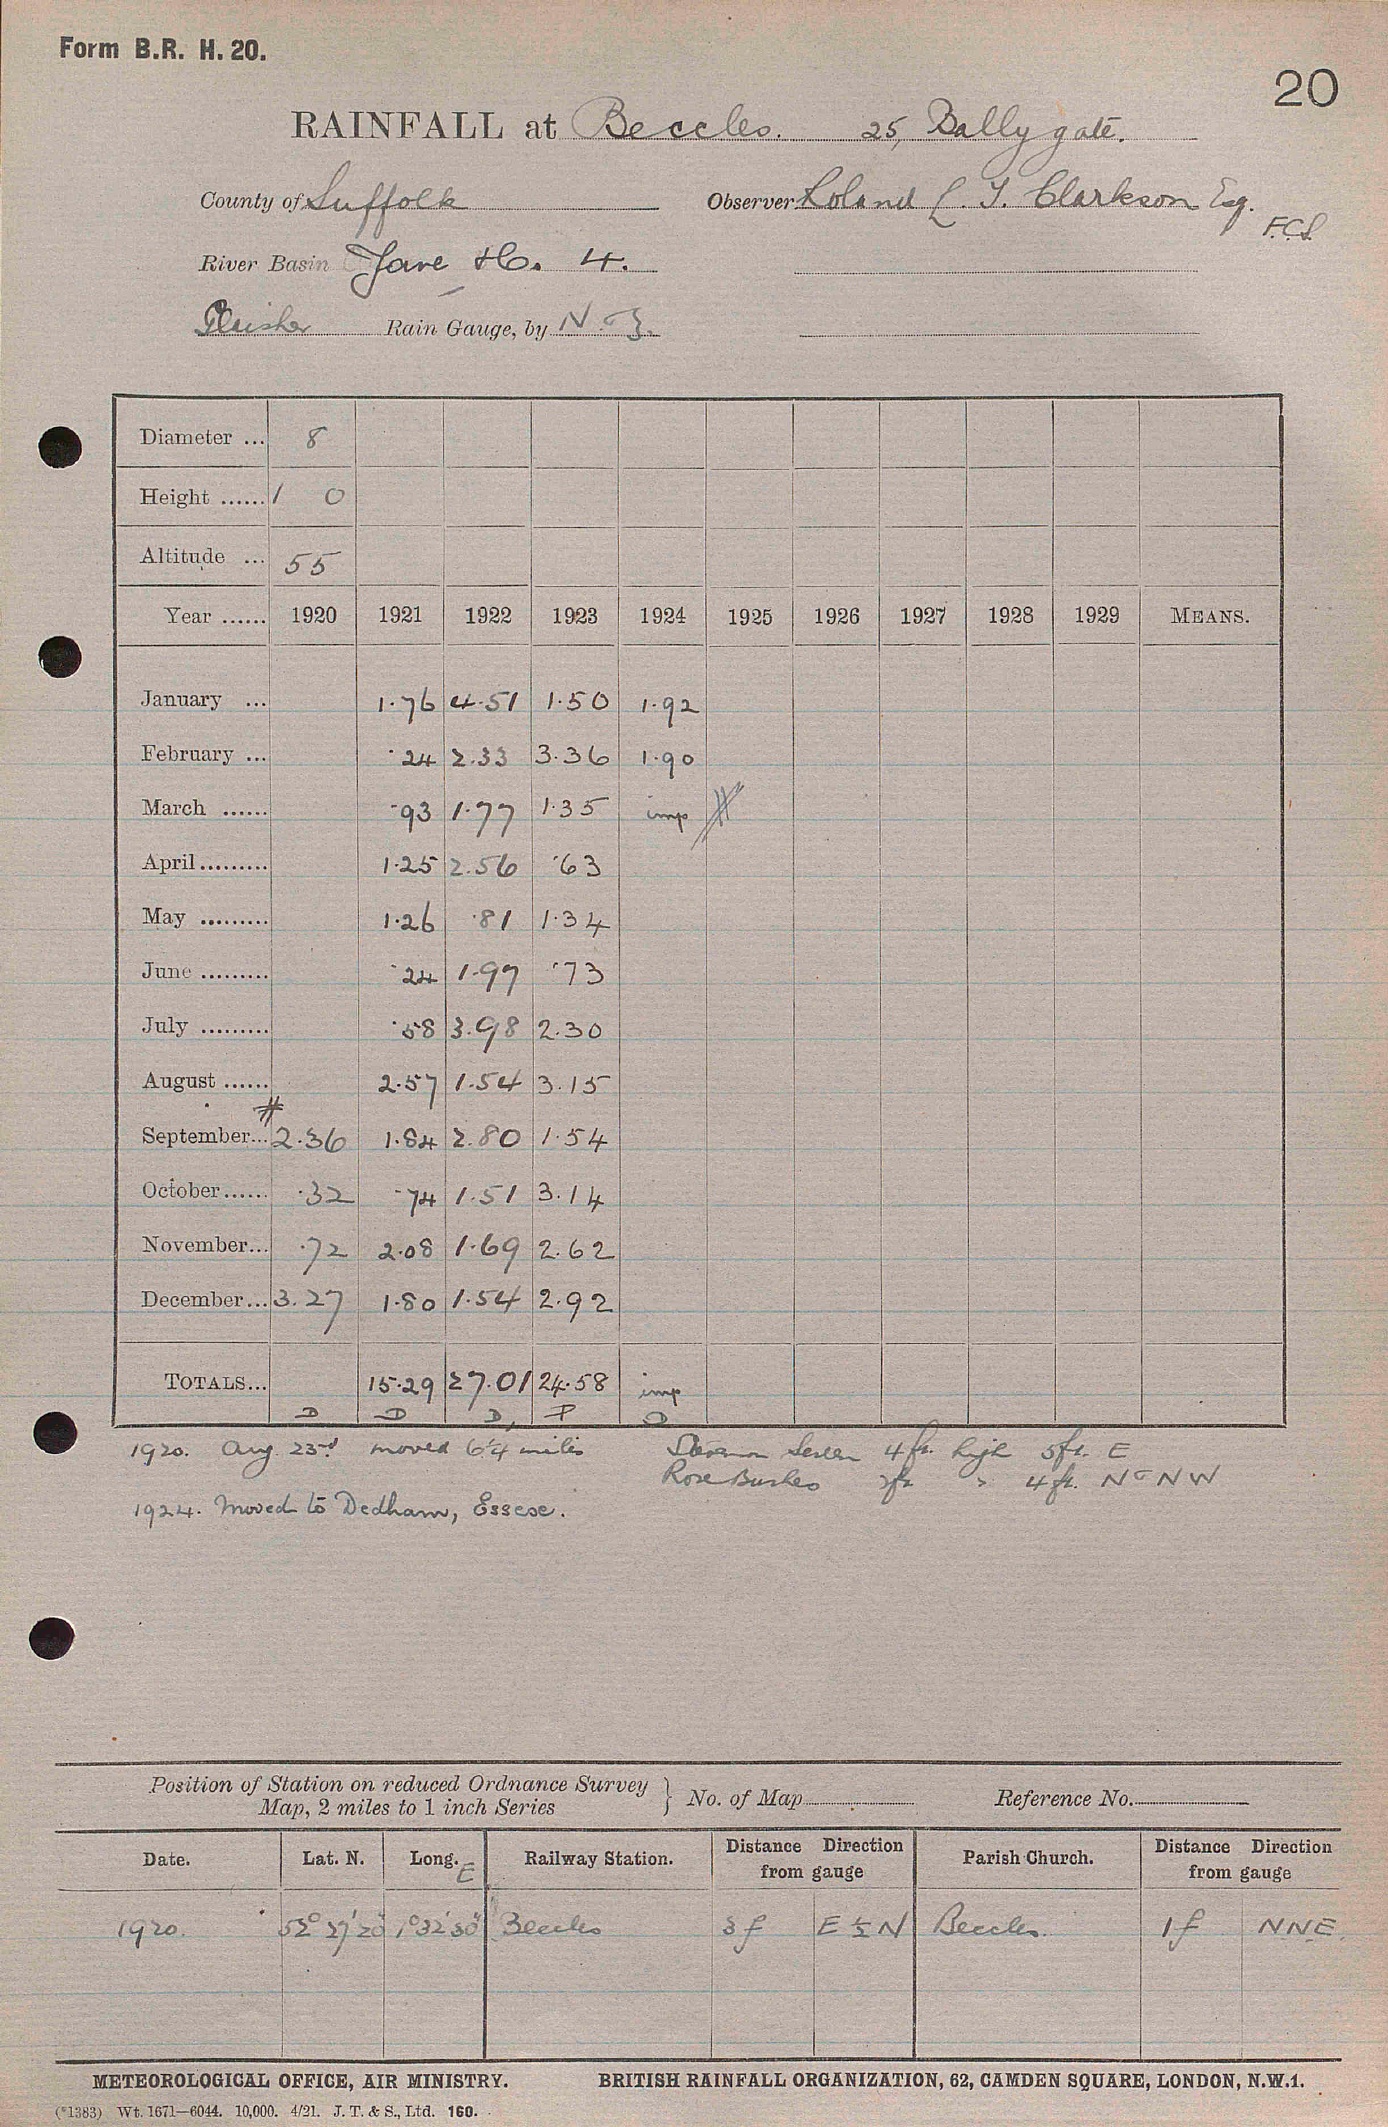 Form B.R. H. 20.
20
RAINFALL at Beccles. 25, Ballygate.
County of Suffolk Observer Roland L. T. Clarkson Esq.
River Basin 4.
Glaisher Rain Gauge, by N & Z.
Diameter ... 8
Height ...... 1 0
Altitude ... 55
Year ...... 1920 1921 1922 1923 1924 1925 1926 1927 1928 1929 MEANS.
January ... 1.76 4.51 1.50 1.92
February ... .24 2.33 3.36 1.90
March ...... .93 1.77 1.35 imp #
April ......... 1.25 2.56 .63
May ......... 1.26 .81 1.34
June ......... .24 1.97 .73
July ......... .58 3.98 2.30
August ...... 2.57 1.54 3.15
#
September... 2.36 1.84 2.80 1.54
October...... .32 .74 1.51 3.14
November... .72 2.08 1.69 2.62
December... 3.27 1.80 1.54 2.92
TOTALS... 15.29 27.01 24.58 imp
D D D, P
1920. Aug. 23rd moved 6¼ miles Screen 4 ft. high 5 ft. E
Rose Bushes 4 ft. N & NW
1924. Moved to Dedham, Essex.
Position of Station on reduced Ordnance Survey
Map, 2 miles to 1 inch Series } No. of Map Reference No.
Date. Lat. N. Long. E Railway Station. Distance Direction from gauge Parish Church. Distance Direction from gauge
1920. 52° 27' 20" 1° 32' 30" Beccles 3 f E ½ N Beccles. 1 f NNE.
METEOROLOGICAL OFFICE, AIR MINISTRY. BRITISH RAINFALL ORGANIZATION, 62, CAMDEN SQUARE, LONDON, N.W.1.
(*1383) Wt. 1671—6044. 10,000. 4/21. J. T. & S., Ltd. 160.